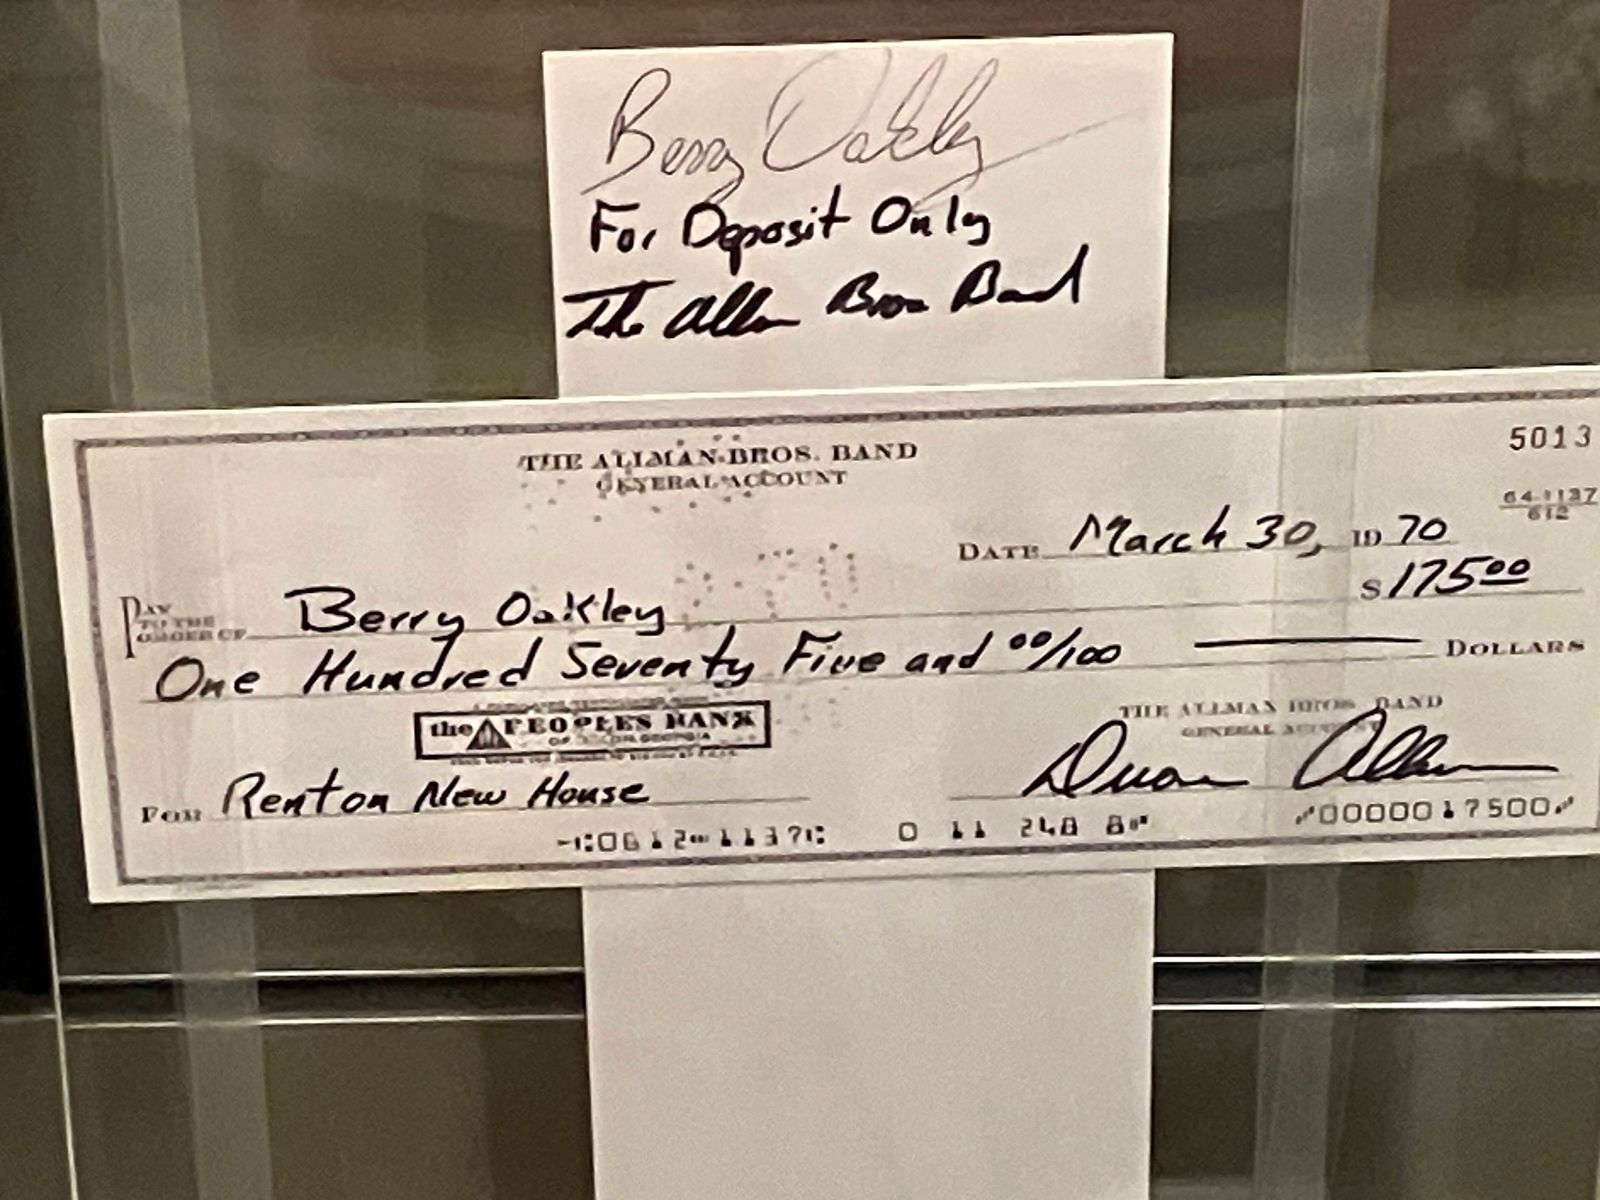 Berry Oakley
For Deposit Only
The Allman Bros Band
THE ALLMAN BROS. BAND
GENERAL ACCOUNT
5013
64-1137
612
DATE March 30, 1970
PAY TO THE ORDER OF Berry Oakley $175.00
One Hundred Seventy Five and 00/100 DOLLARS
the PEOPLES BANK
OF MACON, GEORGIA
THE ALLMAN BROS. BAND
GENERAL ACCOUNT
Duane Allman
FOR Renton New House
⑆0612⑉1137⑆ 0 11 248 8⑈ ⑇0000017500⑇